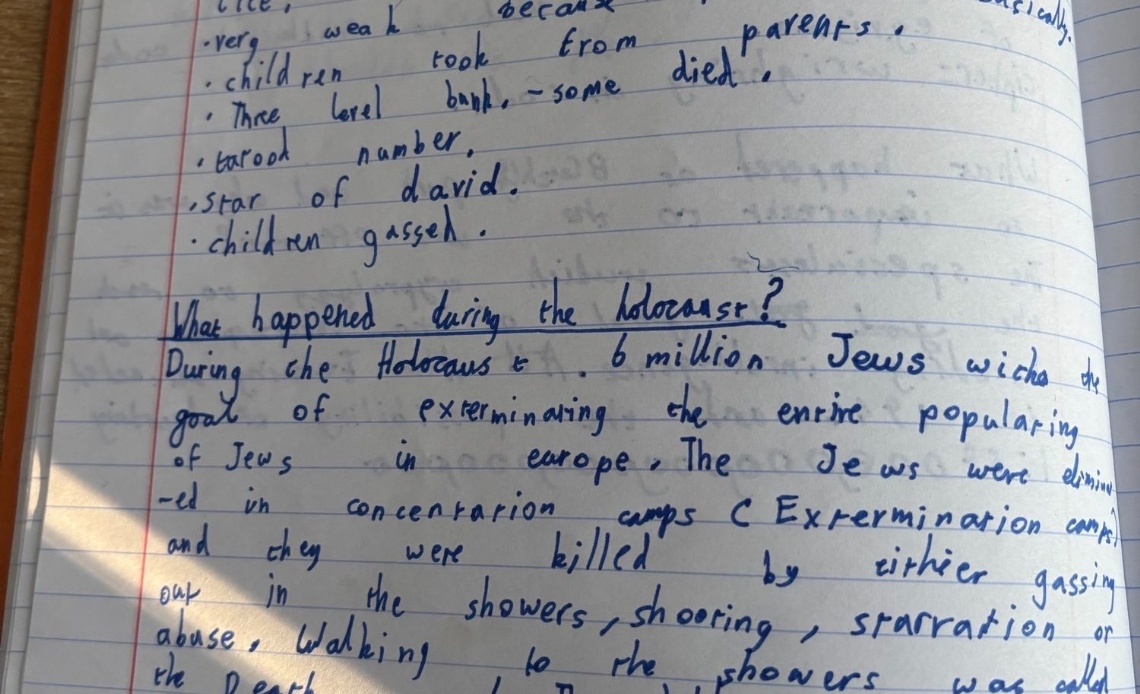 lice,
because
·very weak
· children took from parents.
· Three level bunk, - some died.
· tatood number.
·star of david.
· children gassed.
What happened during the holocaust?
During the Holocaust . 6 million Jews with the
goal of exterminating the entire populating
of Jews in europe. The Jews were elimina
-ed in concentration camps (Extermination camps)
and they were killed by eithier gassing
out in the showers, shooting, starvation or
abuse. Walking to the showers was called
the Death